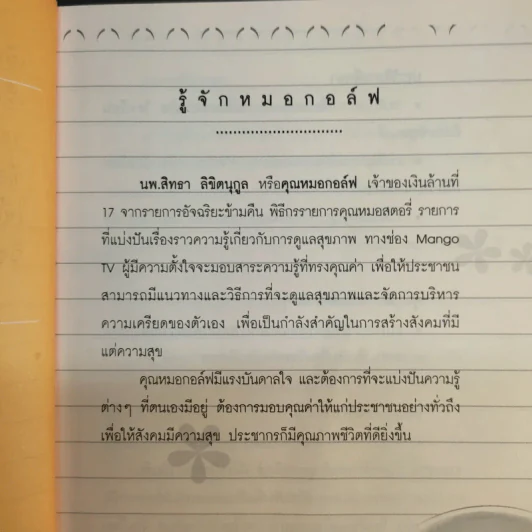 รู้จักหมอกอล์ฟ
นพ.สิทธา ลิขิตนุกูล หรือคุณหมอกอล์ฟ เจ้าของเงินล้านที่
17 จากรายการอัจฉริยะข้ามคืน พิธีกรรายการคุณหมอสตอรี่ รายการ
ที่แบ่งปันเรื่องราวความรู้เกี่ยวกับการดูแลสุขภาพ ทางช่อง Mango
TV ผู้มีความตั้งใจจะมอบสาระความรู้ที่ทรงคุณค่า เพื่อให้ประชาชน
สามารถมีแนวทางและวิธีการที่จะดูแลสุขภาพและจัดการบริหาร
ความเครียดของตัวเอง เพื่อเป็นกำลังสำคัญในการสร้างสังคมที่มี
แต่ความสุข
คุณหมอกอล์ฟมีแรงบันดาลใจ และต้องการที่จะแบ่งปันความรู้
ต่างๆ ที่ตนเองมีอยู่ ต้องการมอบคุณค่าให้แก่ประชาชนอย่างทั่วถึง
เพื่อให้สังคมมีความสุข ประชากรก็มีคุณภาพชีวิตที่ดียิ่งขึ้น